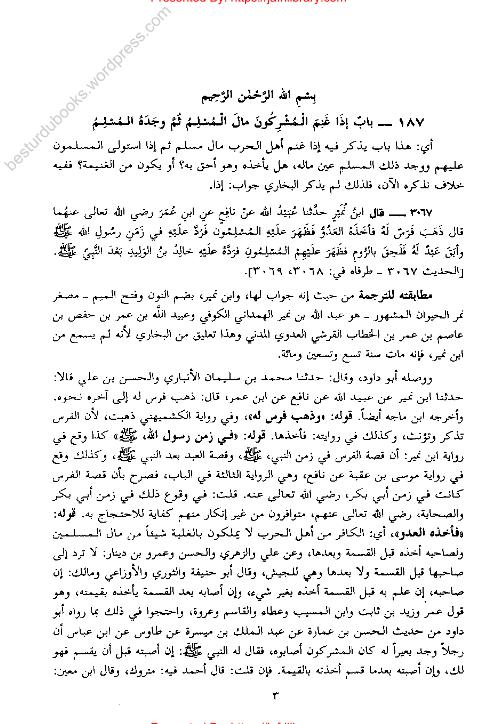 Presented By: https://jafrilibrary.com
besturdubooks.wordpress.com
بِسْمِ اللهِ الرَّحْمٰنِ الرَّحِيمِ
١٨٧ ــ بابٌ إذَا غَنِمَ الْمُشْرِكُونَ مالَ الْمُسْلِمِ ثُمَّ وجَدَهُ الْمُسْلِمُ
أي: هذا باب يذكر فيه إذا غنم أهل الحرب مال مسلم ثم إذا استولى المسلمون
عليهم ووجد ذلك المسلم عين ماله، هل يأخذه وهو أحق به؟ أو يكون من الغنيمة؟ ففيه
خلاف نذكره الآن، فلذلك لم يذكر البخاري جواب: إذا.
٣٠٦٧ ــ قال ابنُ نُمَيْرٍ حدَّثنا عُبَيْدُ الله عنْ نافِعٍ عنِ ابنِ عُمَرَ رضي الله تعالى عنهُما
قال ذَهَبَ فَرَسٌ لَهُ فأخَذَهُ العَدُوُّ فَظَهَرَ عَلَيْهِ المُسْلِمُونَ فَرُدَّ عَلَيْهِ في زَمَنِ رسُولِ الله ﷺ
وأبَقَ عَبْدٌ لَهُ فَلَحِقَ بالرُّومِ فظَهَرَ علَيْهِمُ المُسْلِمُونَ فرَدَّهُ علَيْهِ خالِدُ بنُ الوَلِيدِ بَعْدَ النَّبِيِّ ﷺ.
[الحديث ٣٠٦٧ ـ طرفاه في: ٣٠٦٨، ٣٠٦٩].
مطابقته للترجمة من حيث إنه جواب لها، وابن نمير، بضم النون وفتح الميم ـ مصغر
نمر الحيوان المشهور ـ هو عبد الله بن نمير الهمداني الكوفي وعبيد الله بن عمر بن حفص بن
عاصم بن عمر بن الخطاب القرشي العدوي المدني وهذا تعليق من البخاري لأنه لم يسمع من
ابن نمير، فإنه مات سنة تسع وتسعين ومائة.
ووصله أبو داود، وقال: حدثنا محمد بن سليمان الأنباري والحسن بن علي قالا:
حدثنا ابن نمير عن عبيد الله عن نافع عن ابن عمر، قال: ذهب فرس له إلى آخره نحوه.
وأخرجه ابن ماجه أيضاً. قوله: «وذهب فرس له»، وفي رواية الكشميهني ذهبت، لأن الفرس
تذكر وتؤنث، وكذلك في روايته: فأخذها. قوله: «في زمن رسول الله، ﷺ» كذا وقع في
رواية ابن نمير: أن قصة الفرس في زمن النبي، ﷺ، وقصة العبد بعد النبي ﷺ، وكذلك وقع
في رواية موسى بن عقبة عن نافع، وهي الرواية الثالثة في الباب، فصرح بأن قصة الفرس
كانت في زمن أبي بكر، رضي الله تعالى عنه. قلت: في وقوع ذلك في زمن أبي بكر
والصحابة، رضي الله تعالى عنهم، متوافرون من غير إنكار منهم كفاية للاحتجاج به. قوله:
«فأخذه العدو»، أي: الكافر من أهل الحرب لا يملكون بالغلبة شيئاً من مال المسلمين
ولصاحبه أخذه قبل القسمة وبعدها، وعن علي والزهري والحسن وعمرو بن دينار: لا ترد إلى
صاحبها قبل القسمة ولا بعدها وهي للجيش، وقال أبو حنيفة والثوري والأوزاعي ومالك: إن
صاحبه، إن علم به قبل القسمة أخذه بغير شيء، وإن أصابه بعد القسمة يأخذه بقيمته، وهو
قول عمر وزيد بن ثابت وابن المسيب وعطاء والقاسم وعروة، واحتجوا في ذلك بما رواه أبو
داود من حديث الحسن بن عمارة عن عبد الملك بن ميسرة عن طاوس عن ابن عباس أن
رجلاً وجد بعيراً له كان المشركون أصابوه، فقال له النبي ﷺ: إن أصبته قبل أن يقسم فهو
لك، وإن أصبته بعدما قسم أخذته بالقيمة. فإن قلت: قال أحمد فيه: متروك، وقال ابن معين:
٣